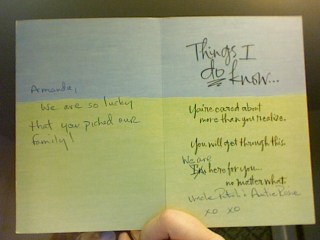 Amanda,
We are so lucky
that you picked our
family!
Things I
do know...
You're cared about
more than you realize.
You will get through this.
We are
here for you...
no matter what.
Uncle
& Auntie
xo xo